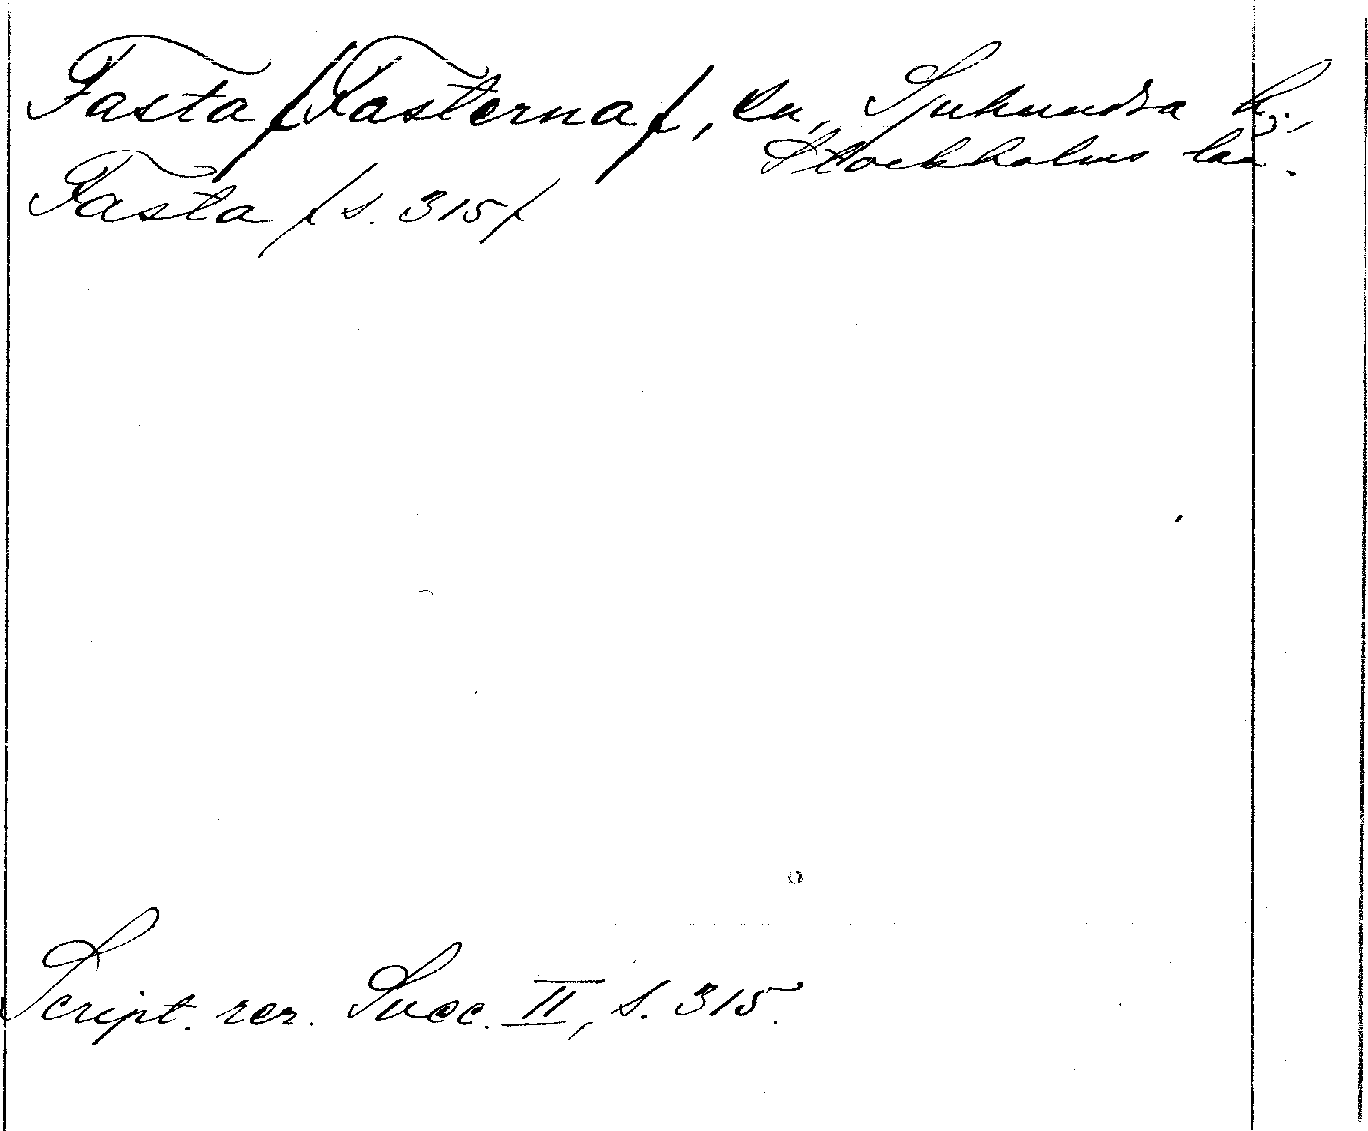 Fasta /Fasterna/, sn, Sjuhundra hd.,
Stockholms län.
Fasta / s. 315/
Script. rer. Svec. II, s. 315.